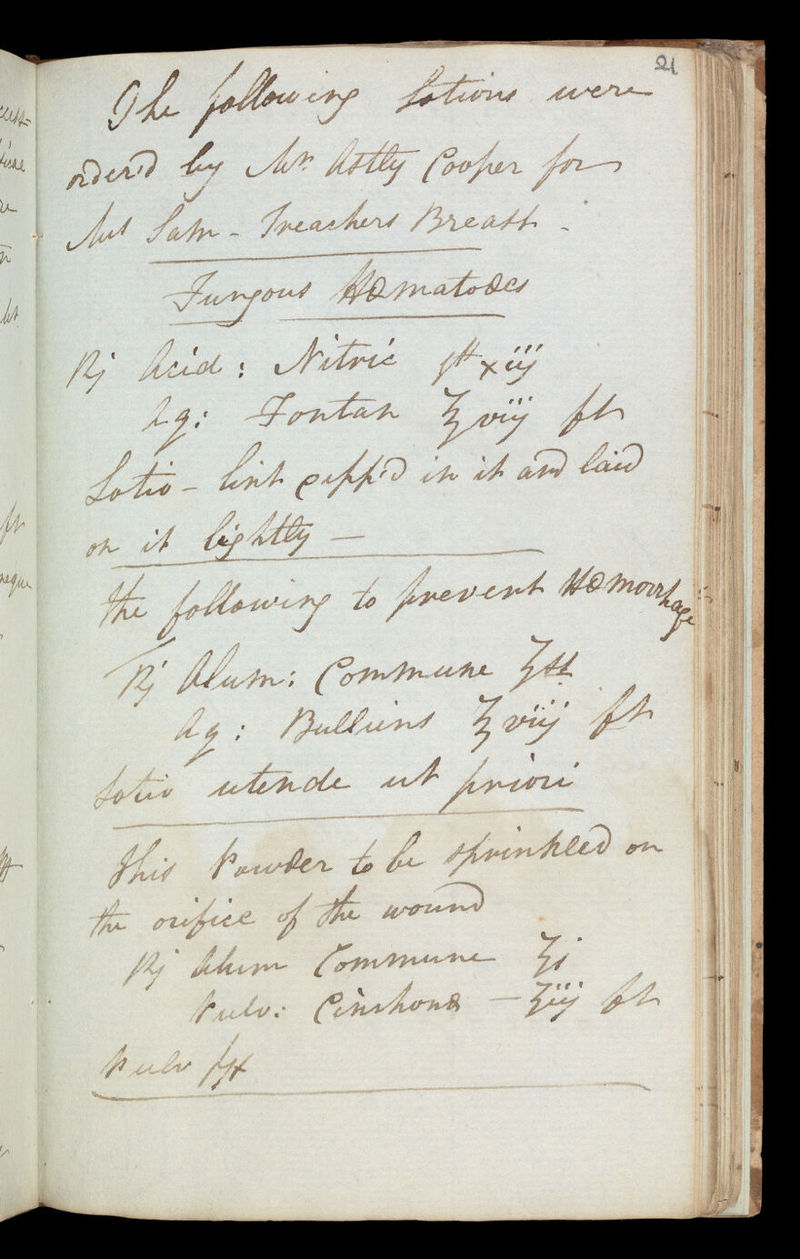 21
The following Lotions were
order'd by Mr. Astly Cooper for
Mrs Sam - Treachers Breast -
Fungous Hæmatodes
Rj Acid: Nitric xiij
Aq: Fontan ℥viij ft
Lotio - lint dipp'd in it and laid
on it lightly —
the following to prevent Hæmorrhage
Rj Alum: Commune ʒss
Aq: Bulliens ℥viij ft
Lotio utende ut priori
This Powder to be sprinkled on
the orifice of the wound
Rj Alum Commune ʒj
Pulv: Cinchonæ — ʒiij ft
Pulv